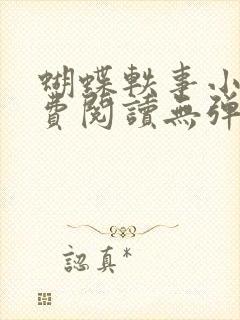 蝴蝶軼事小
費閱讀無彈
認真*